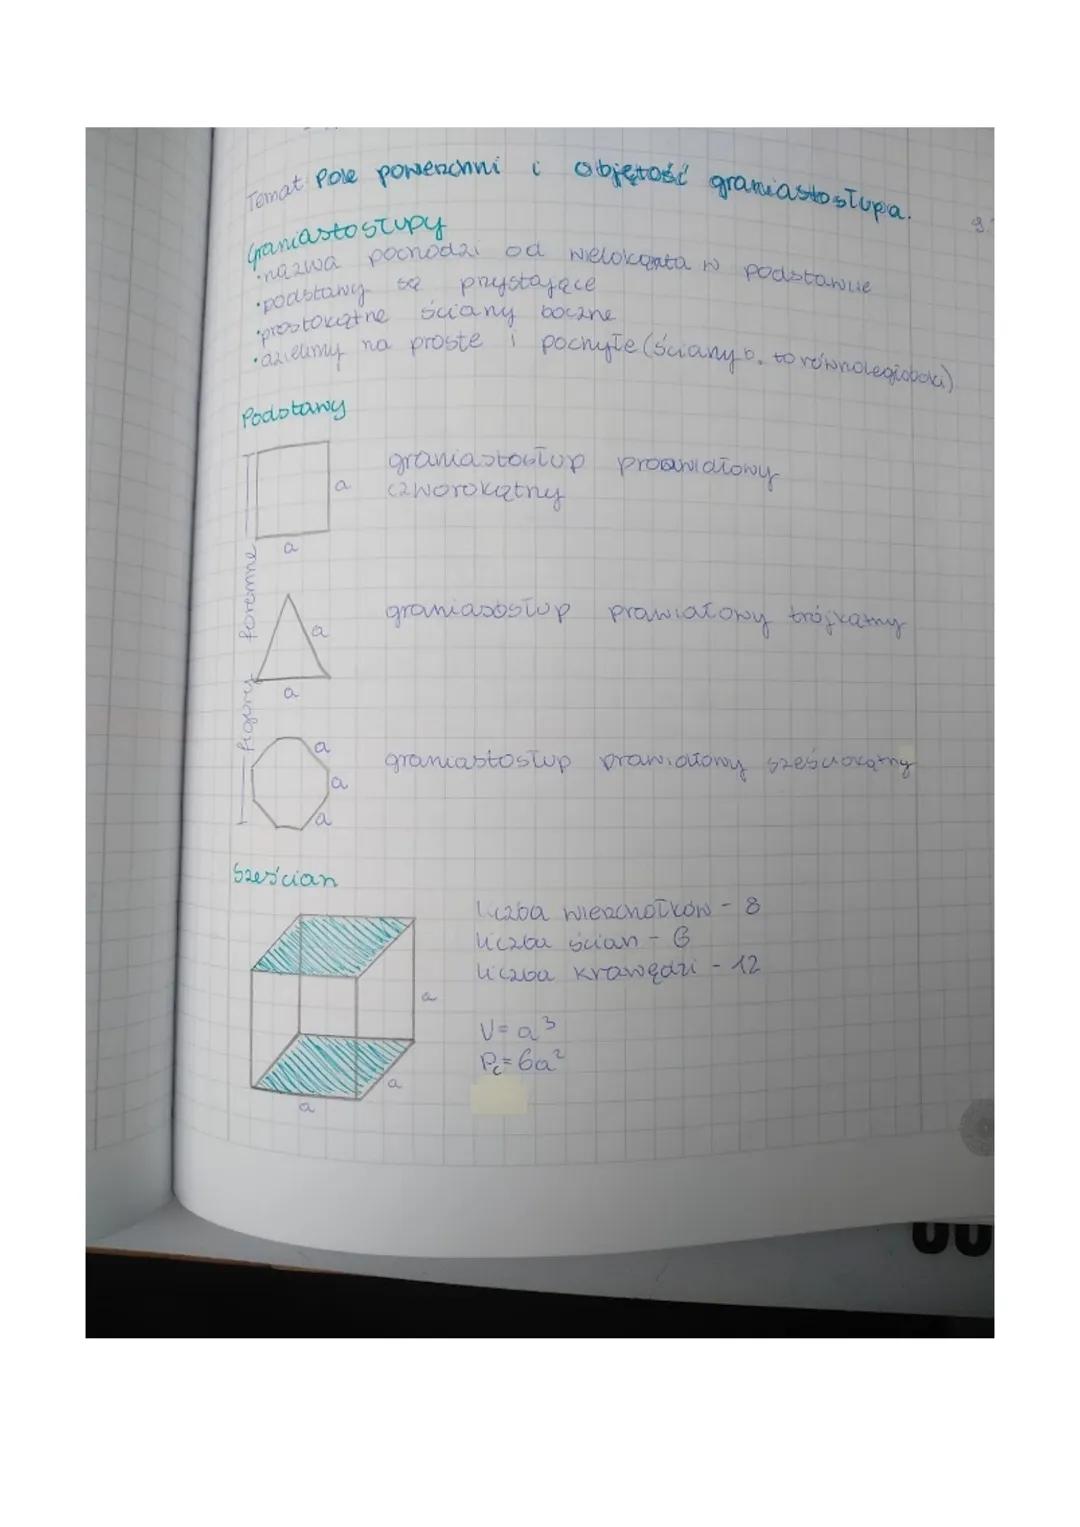 Temat: Pole powierzchni i objętość graniastosłupa.
Graniastosłupy
•nazwa pochodzi od wielokąta w podstawie
•podstawy są przystające
•prostokątne ściany boczne
•dzielimy na proste i pochyłe (ściany b. to równoległoboki)
Podstawy
graniastosłup prawidłowy
czworokątny
a
a
figury foremne
graniastosłup prawidłowy trójkątny
a
a
graniastosłup prawidłowy sześciokątny
a
a
a
Sześcian
liczba wierzchołków - 8
liczba ścian - 6
liczba krawędzi - 12
a
V = a³
Pc = 6a²
a
a